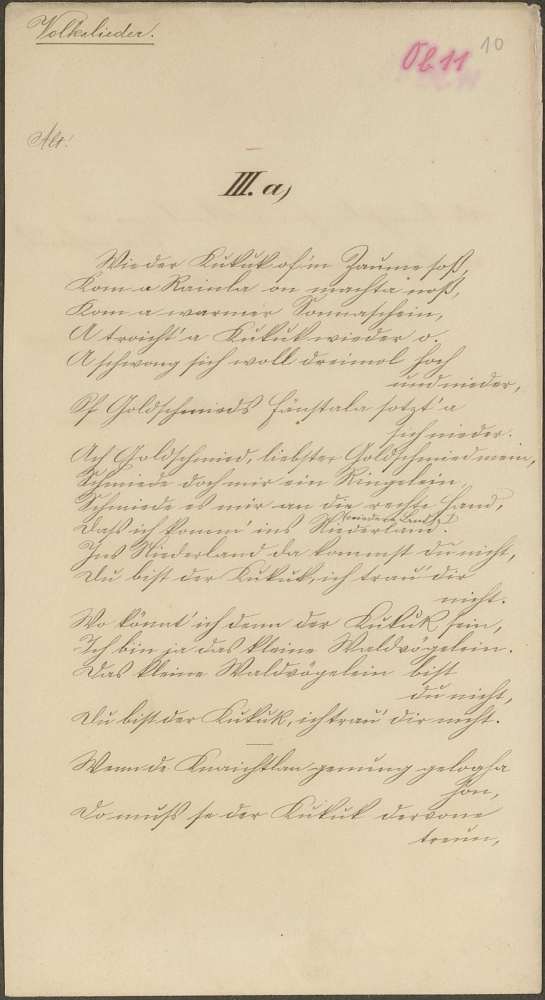 Volkslieder.
Ob 11
10
Alt!
III. a,
Wie der Kukuk of'm Zaume soß,
Kom a Rainla on machta noß,
Kom a warmer Sonnaschein,
A traicht' a Kukuk wieder o.
A schwong sich woll dreimol hoch
und nieder,
Of Goldschmieds Fänstala sotzt' a
sich nieder.
Ach Goldschmied, liebster Goldschmied mein,
Schmiede doch mir ein Ringelein
Schmiede es mir an die rechte Hand,
Daß ich komm' ins Niederland.
Ins Niederland da kommst du nicht,
Du bist der Kukuk, ich trau' dir
nicht.
Wo könnt' ich denn der Kukuk sein,
Ich bin ja das kleine Waldvögelein.
Das kleine Waldvögelein bist
du nicht,
Du bist der Kukuk, ich trau' dir nicht.
Wenn de Knaichtlan genung geloga
hon,
Do muß se der Kukuk dervone